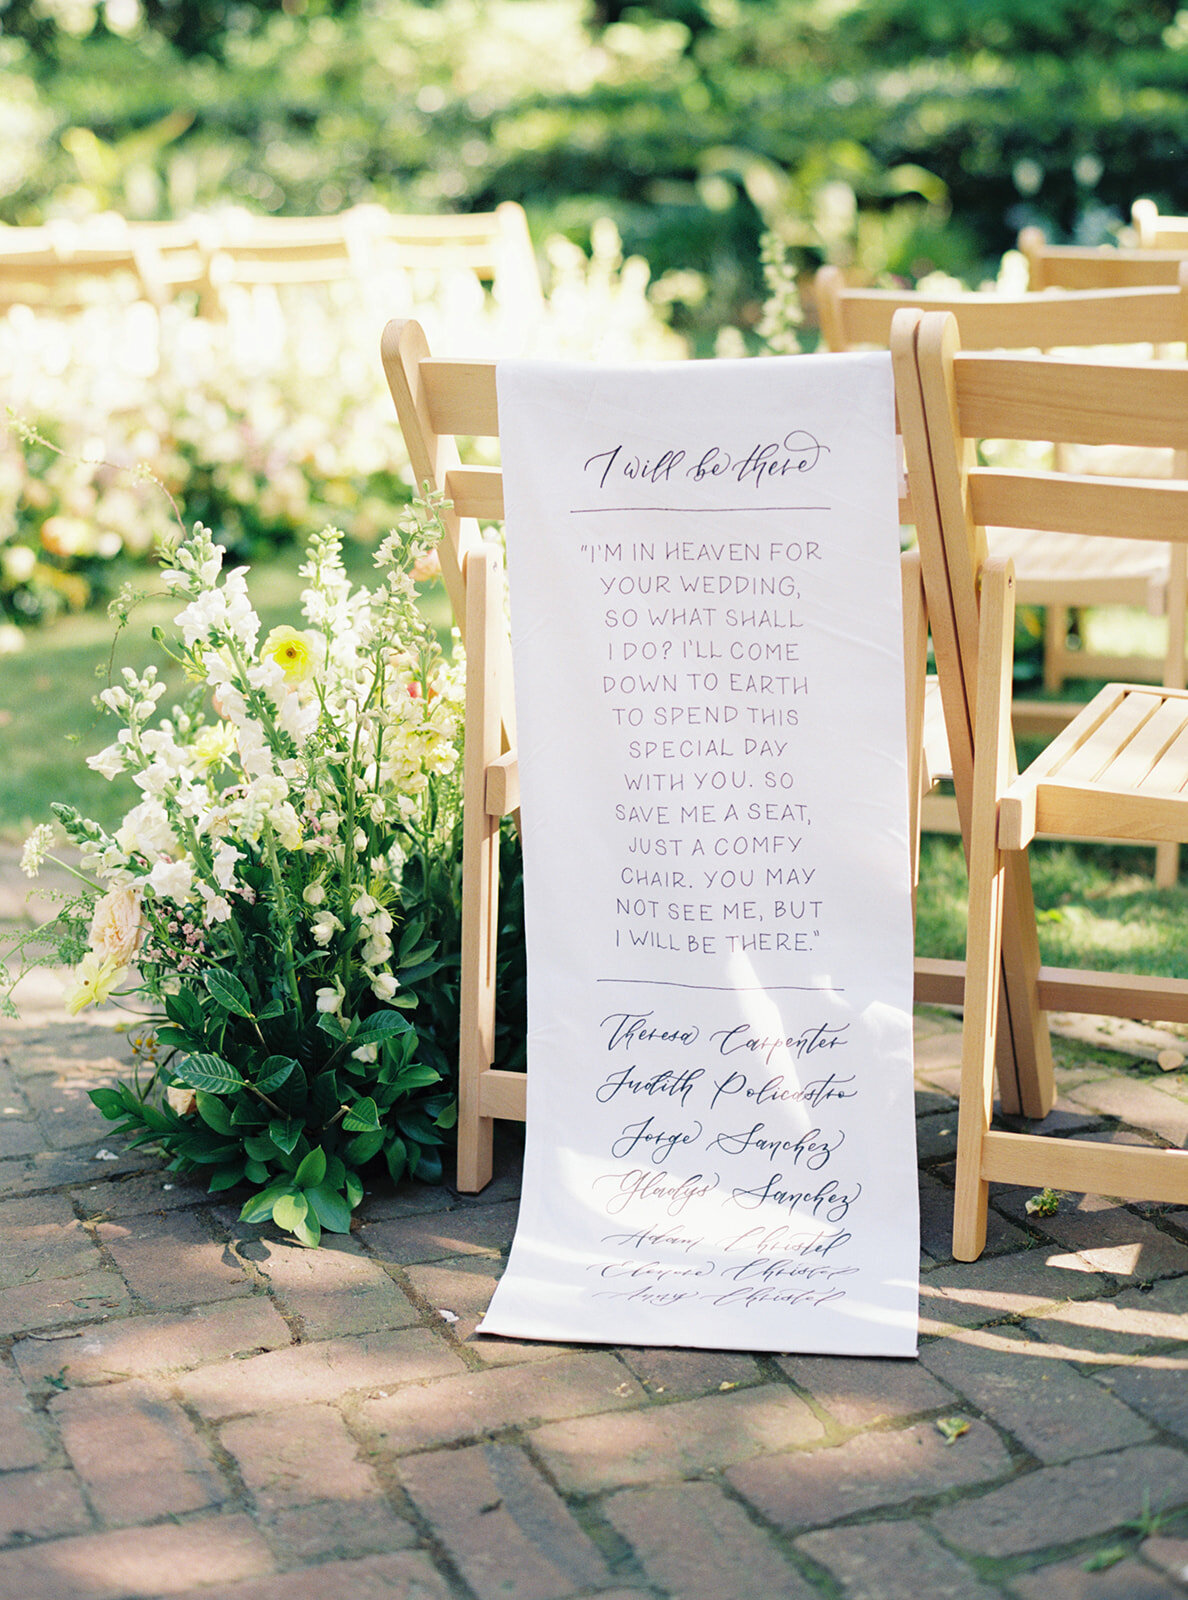 I will be there
"I'M IN HEAVEN FOR
YOUR WEDDING,
SO WHAT SHALL
I DO? I'LL COME
DOWN TO EARTH
TO SPEND THIS
SPECIAL DAY
WITH YOU. SO
SAVE ME A SEAT,
JUST A COMFY
CHAIR. YOU MAY
NOT SEE ME, BUT
I WILL BE THERE."
Theresa Carpenter
Judith Policastro
Jorge Sanchez
Gladys Sanchez
Adam Christel
Eleanore Christel
Anny Christel